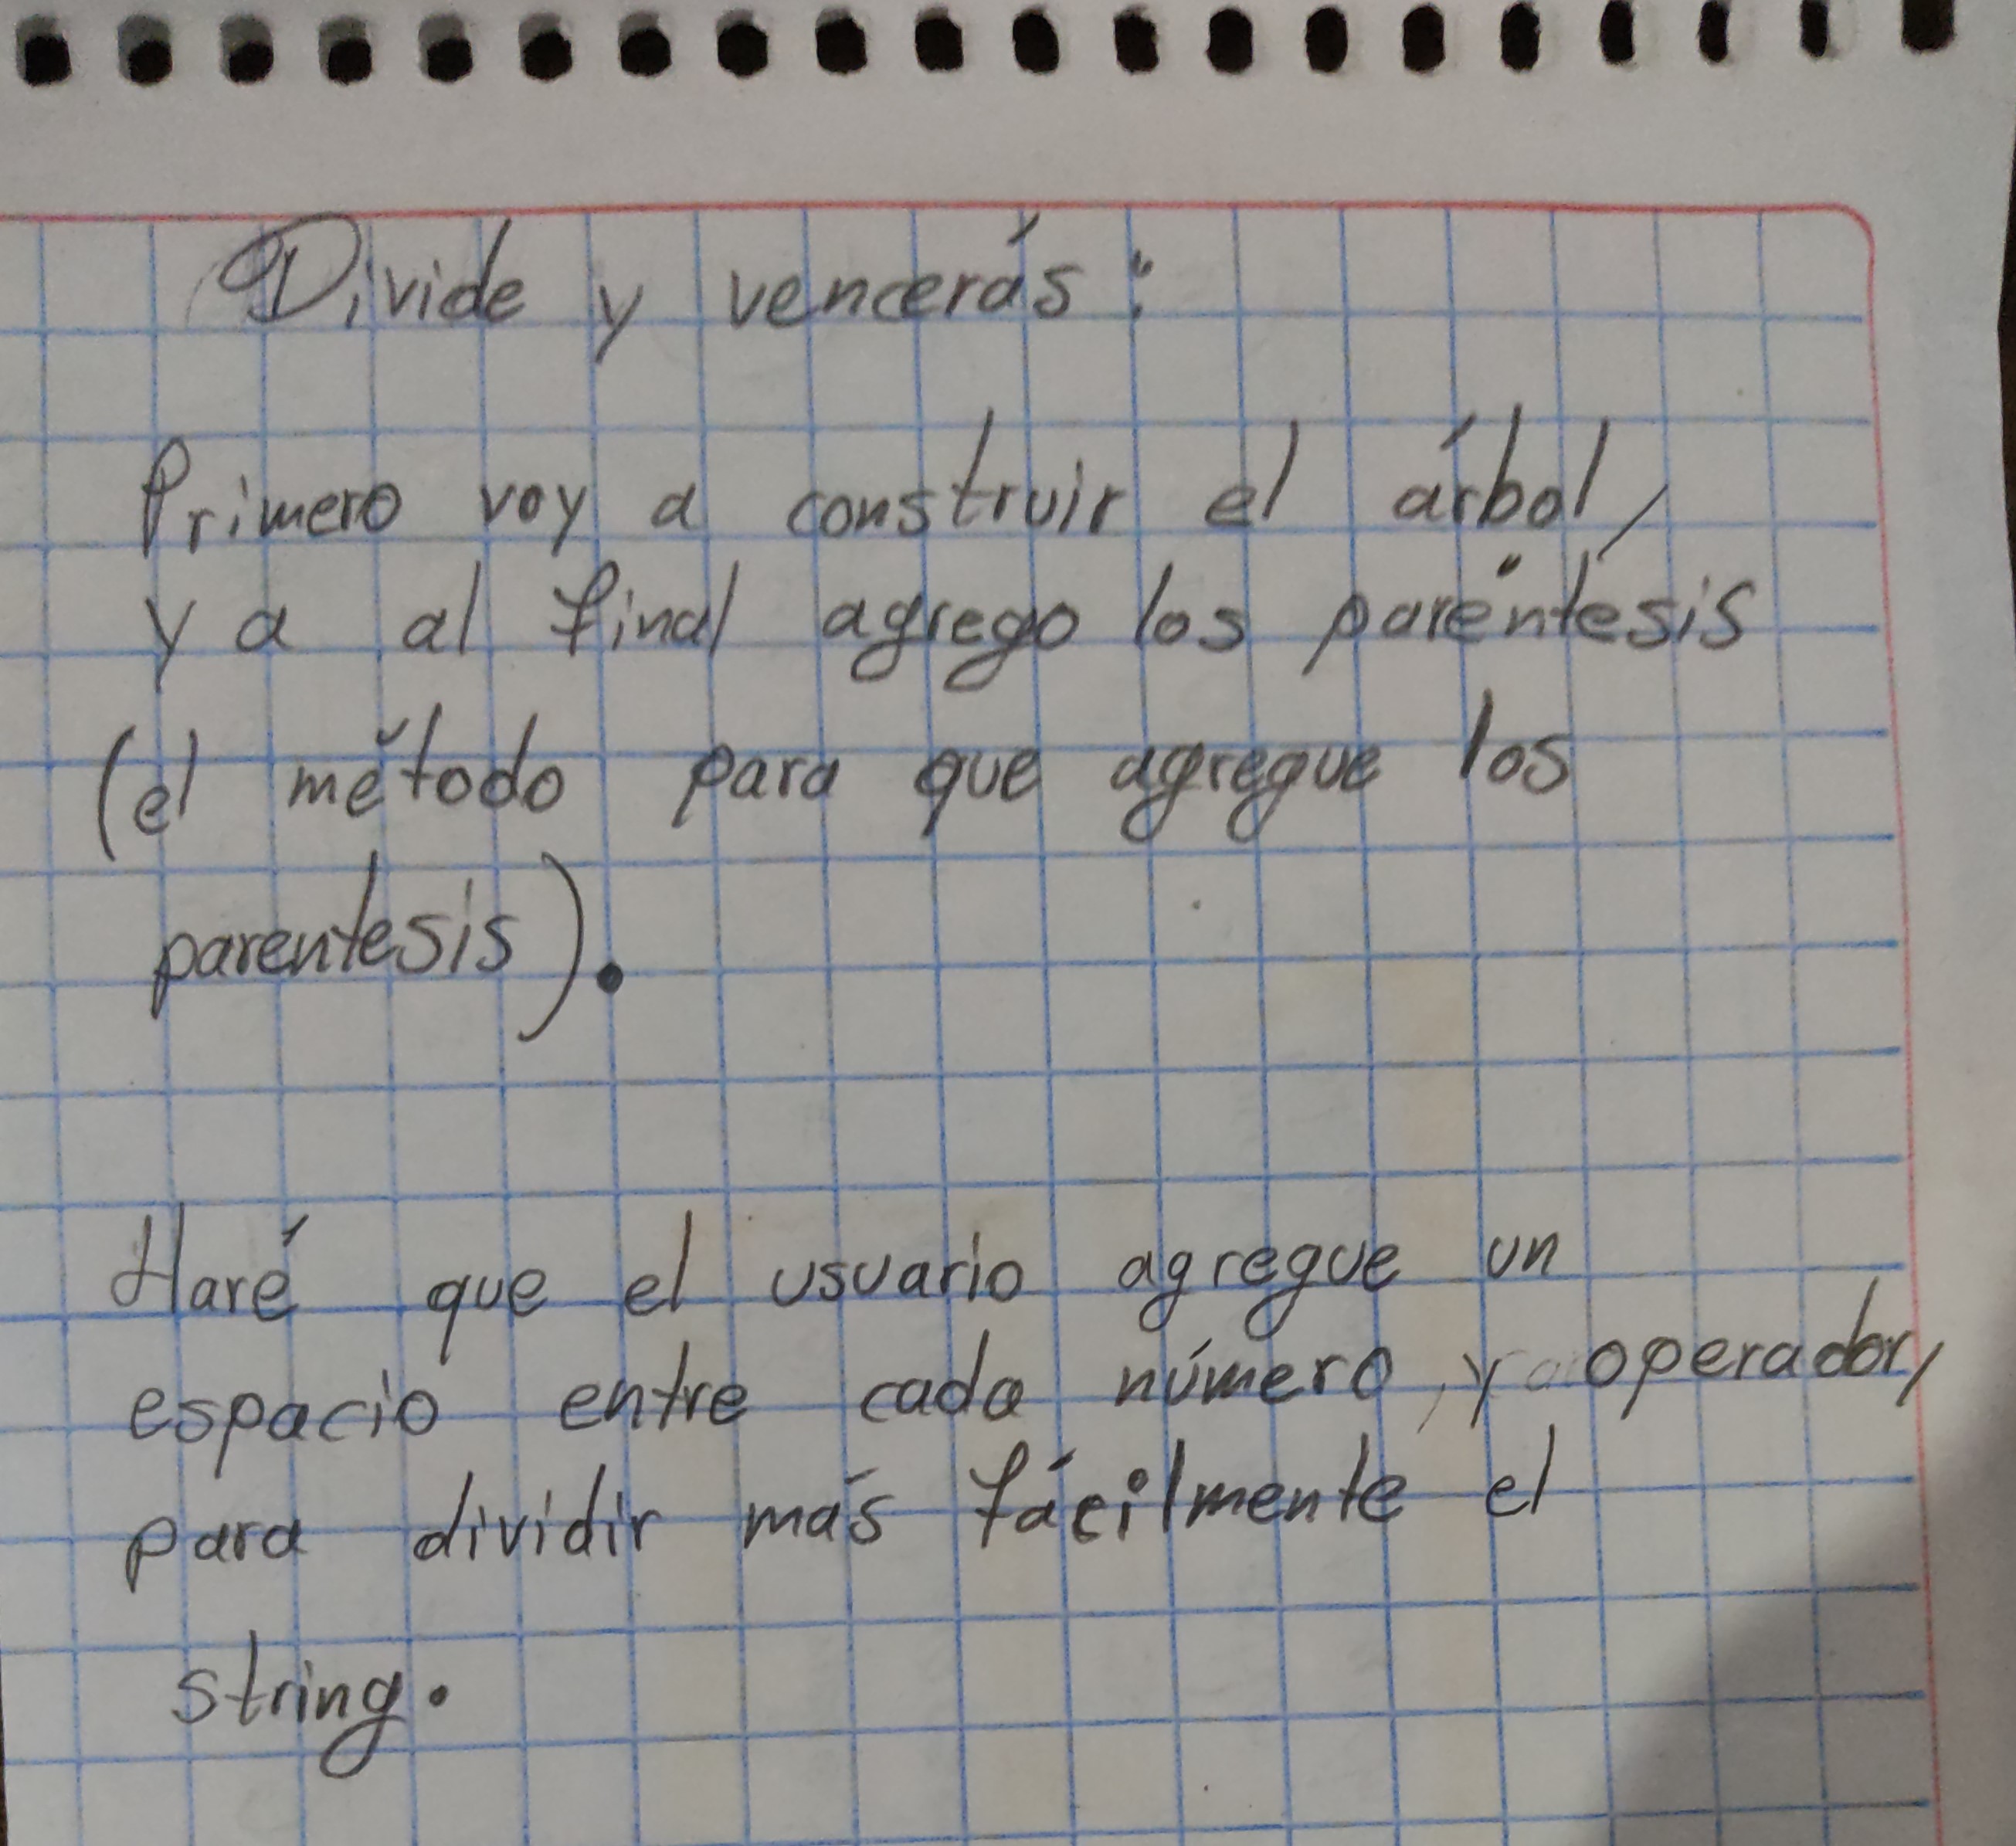 Divide y vencerás:
Primero voy a construir el árbol,
ya al final agrego los paréntesis
(el método para que agregue los
parentesis).
Haré que el usuario agregue un
espacio entre cada número y operador,
para dividir más fácilmente el
string.